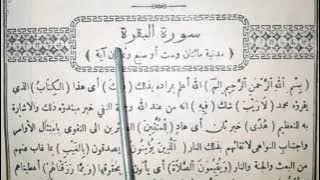 سورة البقرة
﴿ مدنية مائتان وست أو سبع وثمانون آية ﴾
﴿ بسم الله الرحمن الرحيم الم ﴾ الله أعلم بمراده بذلك ( ذلك ) أى هذا ( الكتاب ) الذى
يقرؤه محمد ( لا ريب ) شك ( فيه ) أنه من عند الله وجملة النفى خبر مبتدؤه ذلك والاشارة
به للتعظيم ( هدى ) خبر ثان أى هاد ( للمتقين ) الصائرين الى التقوى بامتثال الأوامر
واجتناب النواهى لاتقائهم بذلك النار ( الذين يؤمنون ) يصدقون ( بالغيب ) بما غاب عنهم
من البعث والجنة والنار ( ويقيمون الصلاة ) أى يأتون بها بحقوقها ( ومما رزقناهم ) أعطيناهم